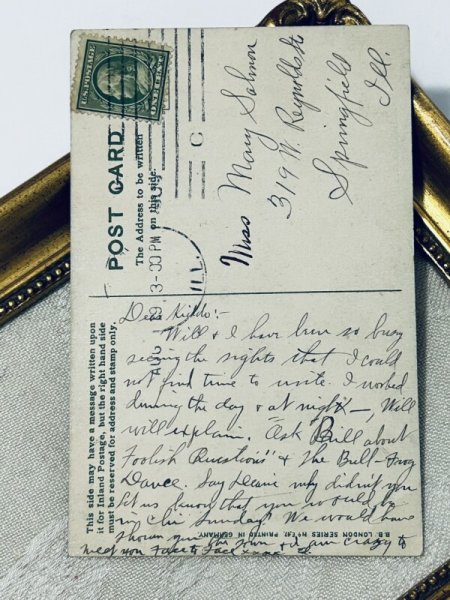 U.S. POSTAGE
ONE CENT
POST CARD
The Address to be written
on this side.
AUG 3-30 PM
ILL.
C
Miss Mary Salmon
319 W. Reynolds St
Springfield
Ill.
This side may have a message written upon
it for Inland Postage, but the right hand side
must be reserved for address and stamp only.
Dear Kiddo:-
Will & I have been so busy
seeing the sights that I could
not find time to write. I worked
during the day & at night—, Will
will explain. Ask Bill about
Foolish Questions" & The Bull Frog
Dance. Say Dearie why didn't you
let us know that you would be
in Chi Sunday? We would have
shown you the town & I am crazy to
meet you Face to Face xxxx
B.B. LONDON SERIES PRINTED IN GERMANY